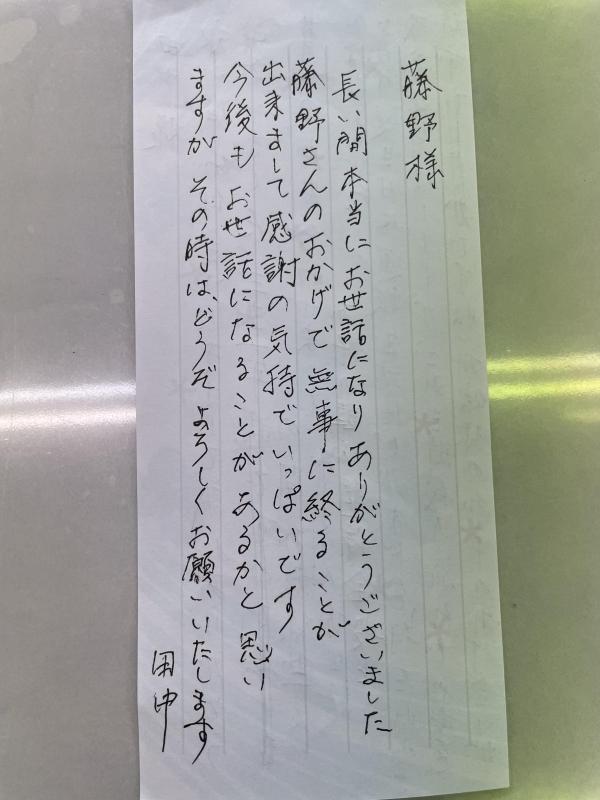 藤野様
長い間本当にお世話になりありがとうございました
藤野さんのおかげで無事に終ることが
出来まして感謝の気持でいっぱいです
今後もお世話になることがあるかと思い
ますがその時は、どうぞよろしくお願いいたします
田中